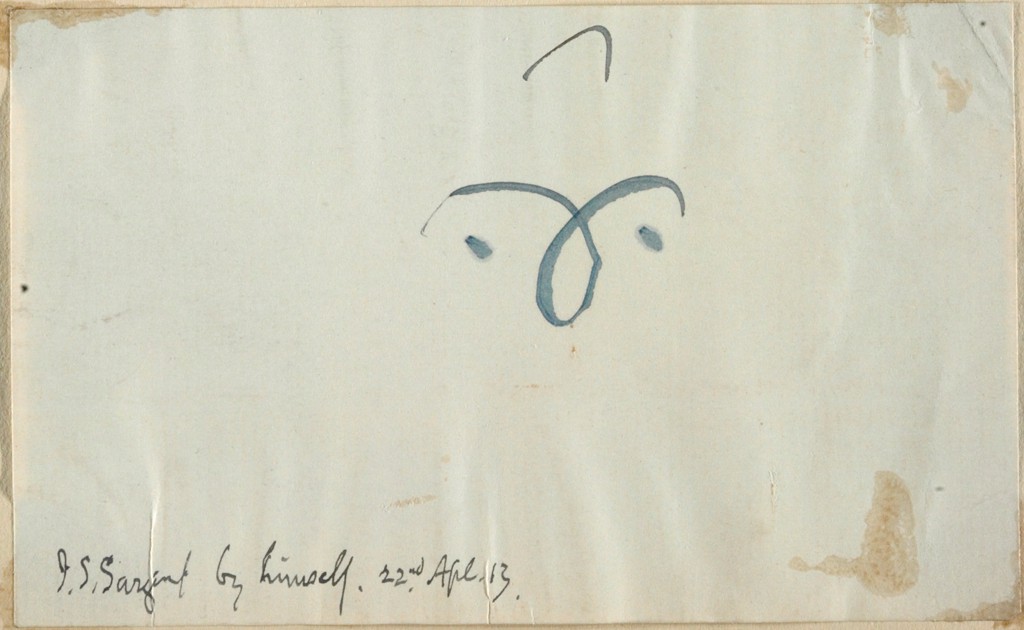 J. S. Sargent by himself. 22nd Apl. 13.